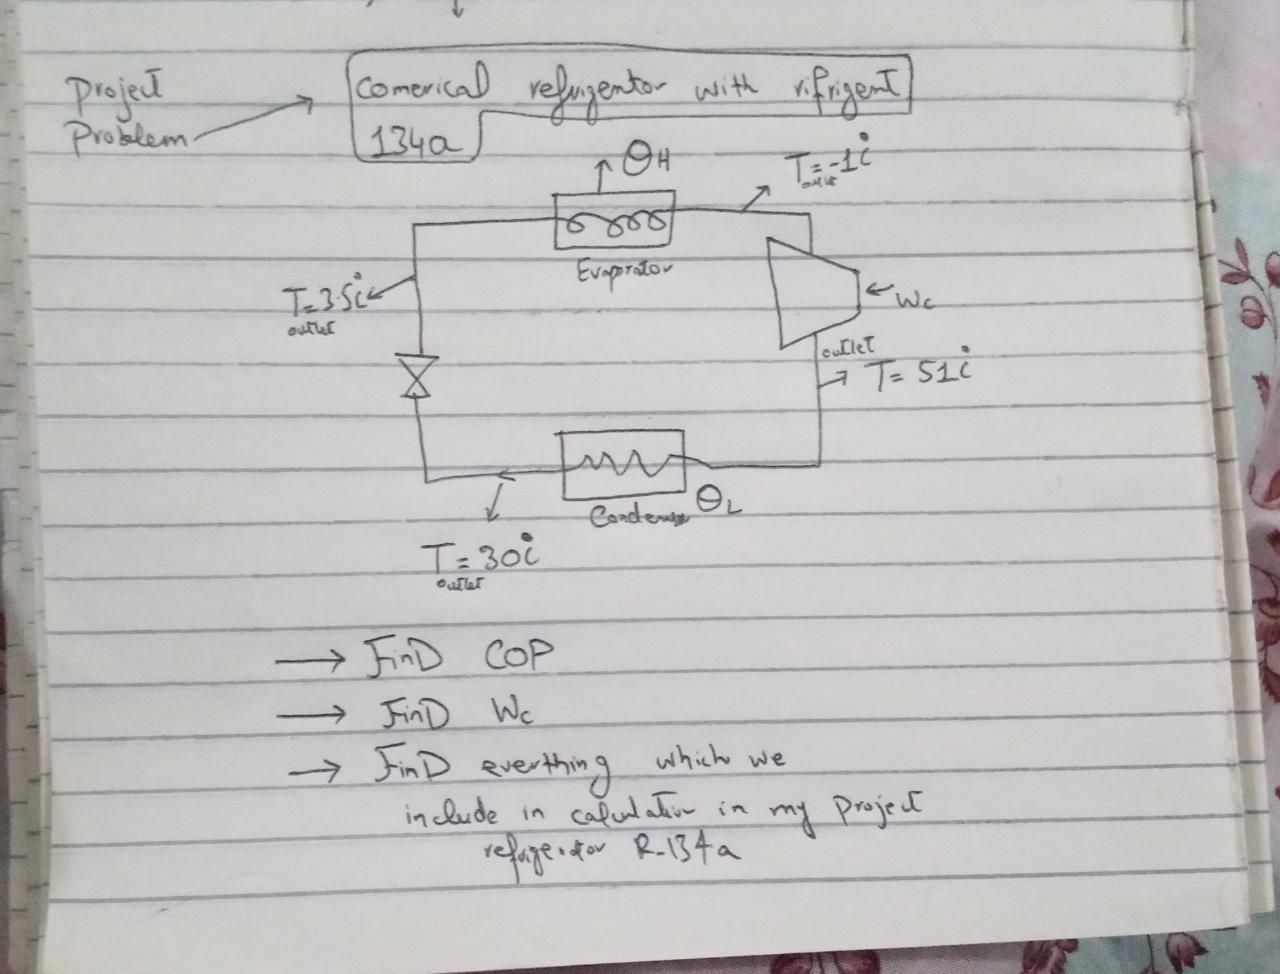 Project
Problem
Comerical refrigentor with rifrigent
134a
QH
T=-1c°
outlet
Evaprator
T=3.5c°
outlet
Wc
outlet
T= 51c°
Condenser
QL
T=30c°
outlet
→ FinD COP
→ FinD Wc
→ FinD everthing which we
include in calculation in my project
R-134a